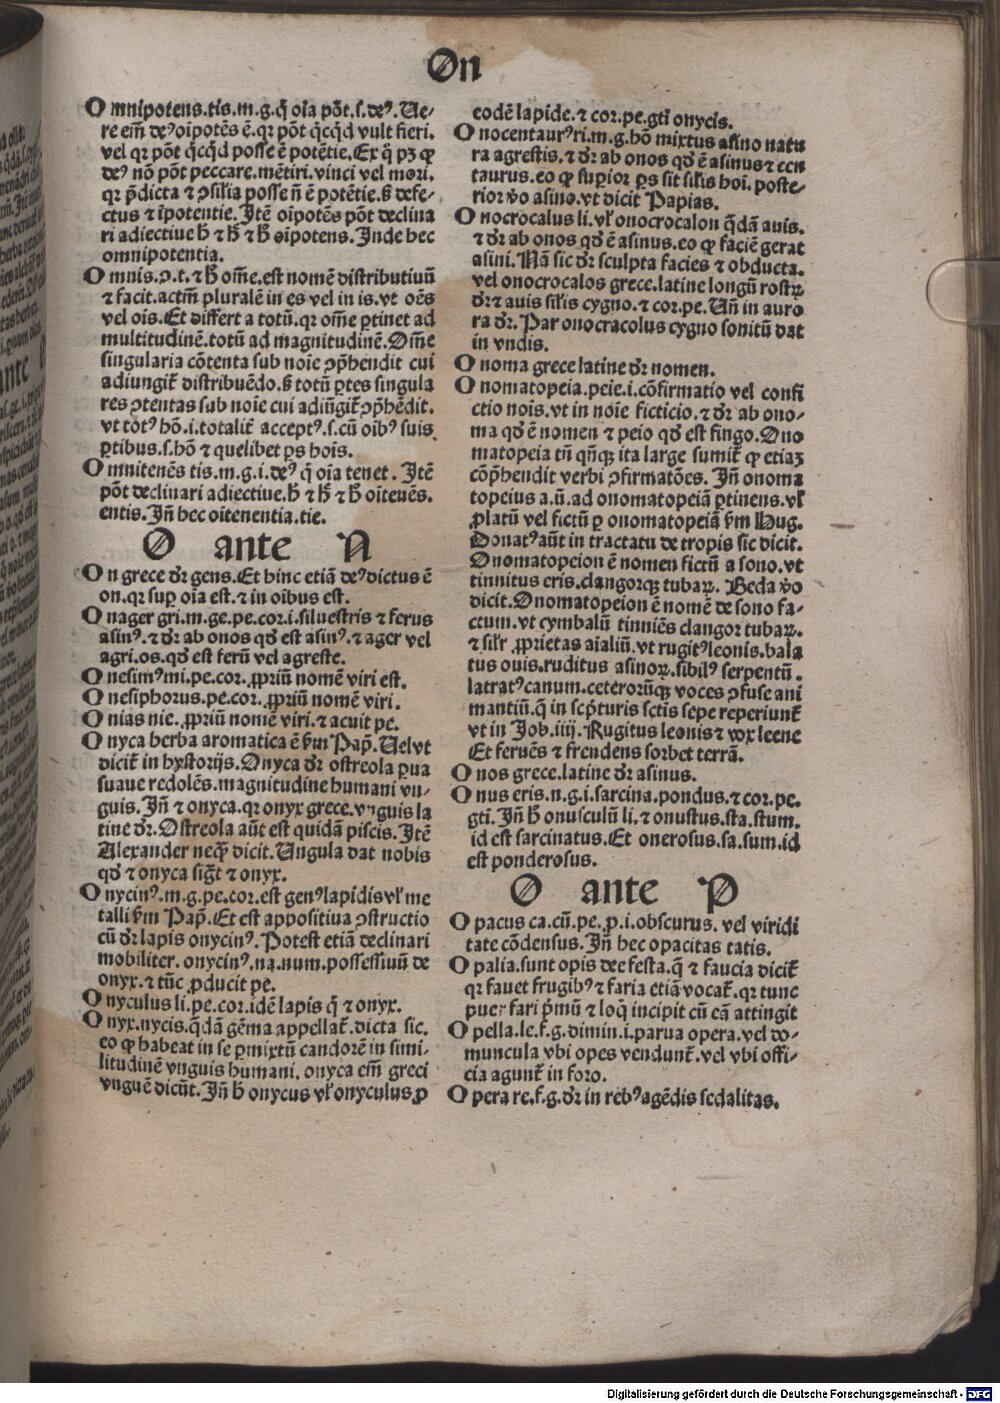 On
Omnipotens.tis.m.g.q̄ oīa pōt.ſ.deꝰ.Ue-
re em̄ deꝰoīpotēs ē.qꝛ pōt q̄cq̄d vult fieri.
vel qꝛ pōt q̄cq̄d poſſe ē potētie.Ex q̄ pꝫ ꝙ
deꝰ nō pōt peccare.mētiri.vinci vel mori.
qꝛ p̄dicta ⁊ ꝯſilia poſſe n̄ ē potētie.ſꝫ defe-
ctus ⁊ īpotentie.Itē oīpotēs pōt declina
ri adiectiue h̄ ⁊ h̄ ⁊ h̄ oīpotens.Inde hec
omnipotentia.
Omnis.ꝯ.t.⁊ h̄ om̄e.eſt nomē diſtributiuū
⁊ facit.actm̄ pluralē in es vel in is.vt oēs
vel oīs.Et differt a totū.qꝛ om̄e ꝑtinet ad
multitudinē.totū ad magnitudinē.Om̄e
ſingularia cōtenta ſub noīe ꝯp̄hendit cui
adiungit̄ diſtribuēdo.ſꝫ totū ꝑtes ſingula
res ꝯtentas ſub noīe cui adiūgit̄ ꝯp̄hēdit.
vt totꝰ hō.i.totalit̄ acceptꝰ.ſ.cū oībꝰ ſuis
ꝑtibus.ſ.hō ⁊ quelibet ꝑs hoīs.
Omnitenēs tis.m.g.i.deꝰ q̄ oīa tenet. Itē
pōt declinari adiectiue.h̄ ⁊ h̄ ⁊ h̄ oītenēs.
entis.Jn̄ hec oītenentia.tie.
O ante N
On grece dꝛ gens.Et hinc etiā deꝰdictus ē
on.qꝛ suꝑ oīa eſt.⁊ in oībus eſt.
Onager gri.m.ge.pe.cor.i.ſilueſtris ⁊ ferus
aſinꝰ.⁊ dꝛ ab onos qd̄ eſt aſinꝰ.⁊ ager vel
agri.os.qd̄ eſt ferū vel agreſte.
Oneſimꝰmi.pe.cor. ꝓpriū nomē viri eſt.
Oneſiphorus.pe.cor. ꝓpriū nomē viri.
Onias nie. ꝓpriū nomē viri.⁊ acuit pe.
Onyca herba aromatica ē ẜm Pap̄.Uelvt
dicit̄ in hyſtorijs.Onyca dꝛ oſtreola ꝑua
ſuaue redolēs.magnitudine humani vn-
guis. Jn̄ ⁊ onyca.qꝛ onyx grece.vnguis la
tine dꝛ.Oſtreola aūt eſt quidā piſcis.Itē
Alexander neqꝫ dicit.Ungula dat nobis
qd̄ ⁊ onyca ſigt̄ ⁊ onyx.
Onycinꝰ.m.g.pe.cor.eſt genꝰlapidis vl̄ me
talli ẜm Pap̄.Et eſt appoſitiua ꝯſtructio
cū dꝛ lapis onycinꝰ.Poteſt etiā declinari
mobiliter. onycinꝰ.na.num.poſſeſſiuū de
onyx.⁊ tūc ꝓducit pe.
Onyculus li.pe.cor.idē lapis q̄ ⁊ onyx.
Onyx.nycis.q̄dā gēma appellat̄.dicta ſic.
eo ꝙ habeat in ſe ꝑmixtū candorē in ſimi-
litudinē vnguis humani. onyca em̄ greci
vnguē dicūt.Jn̄ h̄ onycus vl̄ onyculus.ꝓ
eodē lapide.⁊ cor.pe.gt̄i onycis.
Onocentaurꝰri.m.g.hō mixtus aſino natu
ra agreſtis.⁊ dꝛ ab onos qd̄ ē aſinus⁊ cen
taurus.eo ꝙ suꝑior ꝑs ſit ſil̄is hoī.poſte-
rior v̄o aſino.vt dicit Papias.
Onocrocalus li. vl̄ onocrocalon q̄dā auis.
⁊ dꝛ ab onos qd̄ ē aſinus.eo ꝙ faciē gerat
aſini.Nā ſic dꝛ ſculpta facies ⁊ obducta.
vel onocrocalos grece.latine longū roſtꝝ
dꝛ⁊ auis ſil̄is cygno.⁊ cor.pe. Un̄ in auro
ra dꝛ. Par onocracolus cygno ſonitū dat
in vndis.
Onoma grece latine dꝛ nomen.
Onomatopeia.peie.i.cōfirmatio vel confi
ctio noīs.vt in noīe ficticio.⁊ dꝛ ab ono-
ma qd̄ ē nomen ⁊ peio qd̄ eſt fingo.Ono
matopeia tn̄ qn̄qꝫ ita large ſumit̄ ꝙ etiaꝫ
cōp̄hendit verbi ꝯfirmatōes. Jn̄ onoma
topeius a.ū.ad onomatopeiā ꝑtinens.vl̄
ꝓlatū vel fictū ꝑ onomatopeiā ẜm Hug.
Donatꝰaūt in tractatu de tropis ſic dicit.
Onomatopeion ē nomen fictū a ſono.vt
tinnitus eris.clangorqꝫ tubaꝝ. Beda v̄o
dicit.Onomatopeion ē nomē de ſono fa-
ctum.vt cymbalū tinniēs clangor tubaꝝ.
⁊ ſil̄r ꝓprietas aīaliū.vt rugitꝰleonis.bala
tus ouis.ruditus aſinoꝝ.ſibilꝰ ſerpentū.
latratꝰcanum.ceterorūqꝫ voces ꝯfuſe ani
mantiū.q̄ in ſcp̄turis ſctis ſepe reperiunt̄
vt in Job.iiij. Rugitus leonis ⁊ vox leene
Et feruēs ⁊ frendens ſorbet terrā.
Onos grece.latine dꝛ aſinus.
Onus eris.n.g.i.ſarcina.pondus.⁊ cor.pe.
gt̄i. Jn̄ h̄ onuſculū li.⁊ onuſtus.ſta.ſtum.
id eſt ſarcinatus.Et oneroſus.ſa.ſum.id
eſt ponderoſus.
O ante P
Opacus ca.cū.pe.ꝓ.i.obſcurus. vel viridi
tate cōdenſus. Jn̄ hec opacitas tatis.
Opalia.ſunt opis dee feſta.q̄ ⁊ faucia dicit̄
qꝛ fauet frugibꝰ ⁊ faria etiā vocat̄.qꝛ tunc
puer fari p̄mū ⁊ loq̄ incipit cū eā attingit
Opella.le.f.g.dimin.i.parua opera.vel do-
muncula vbi opes vendunt̄.vel vbi offi-
cia agunt̄ in foro.
Opera re.f.g.dꝛ in rebꝰagēdis ſedalitas.
Digitalisierung gefördert durch die Deutsche Forschungsgemeinschaft - DFG